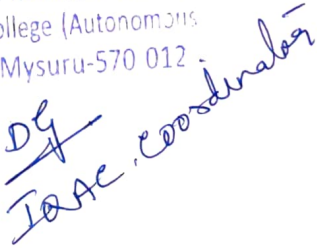 ollege (Autonomous
Mysuru-570 012.
DG
IQAC, Coordinator